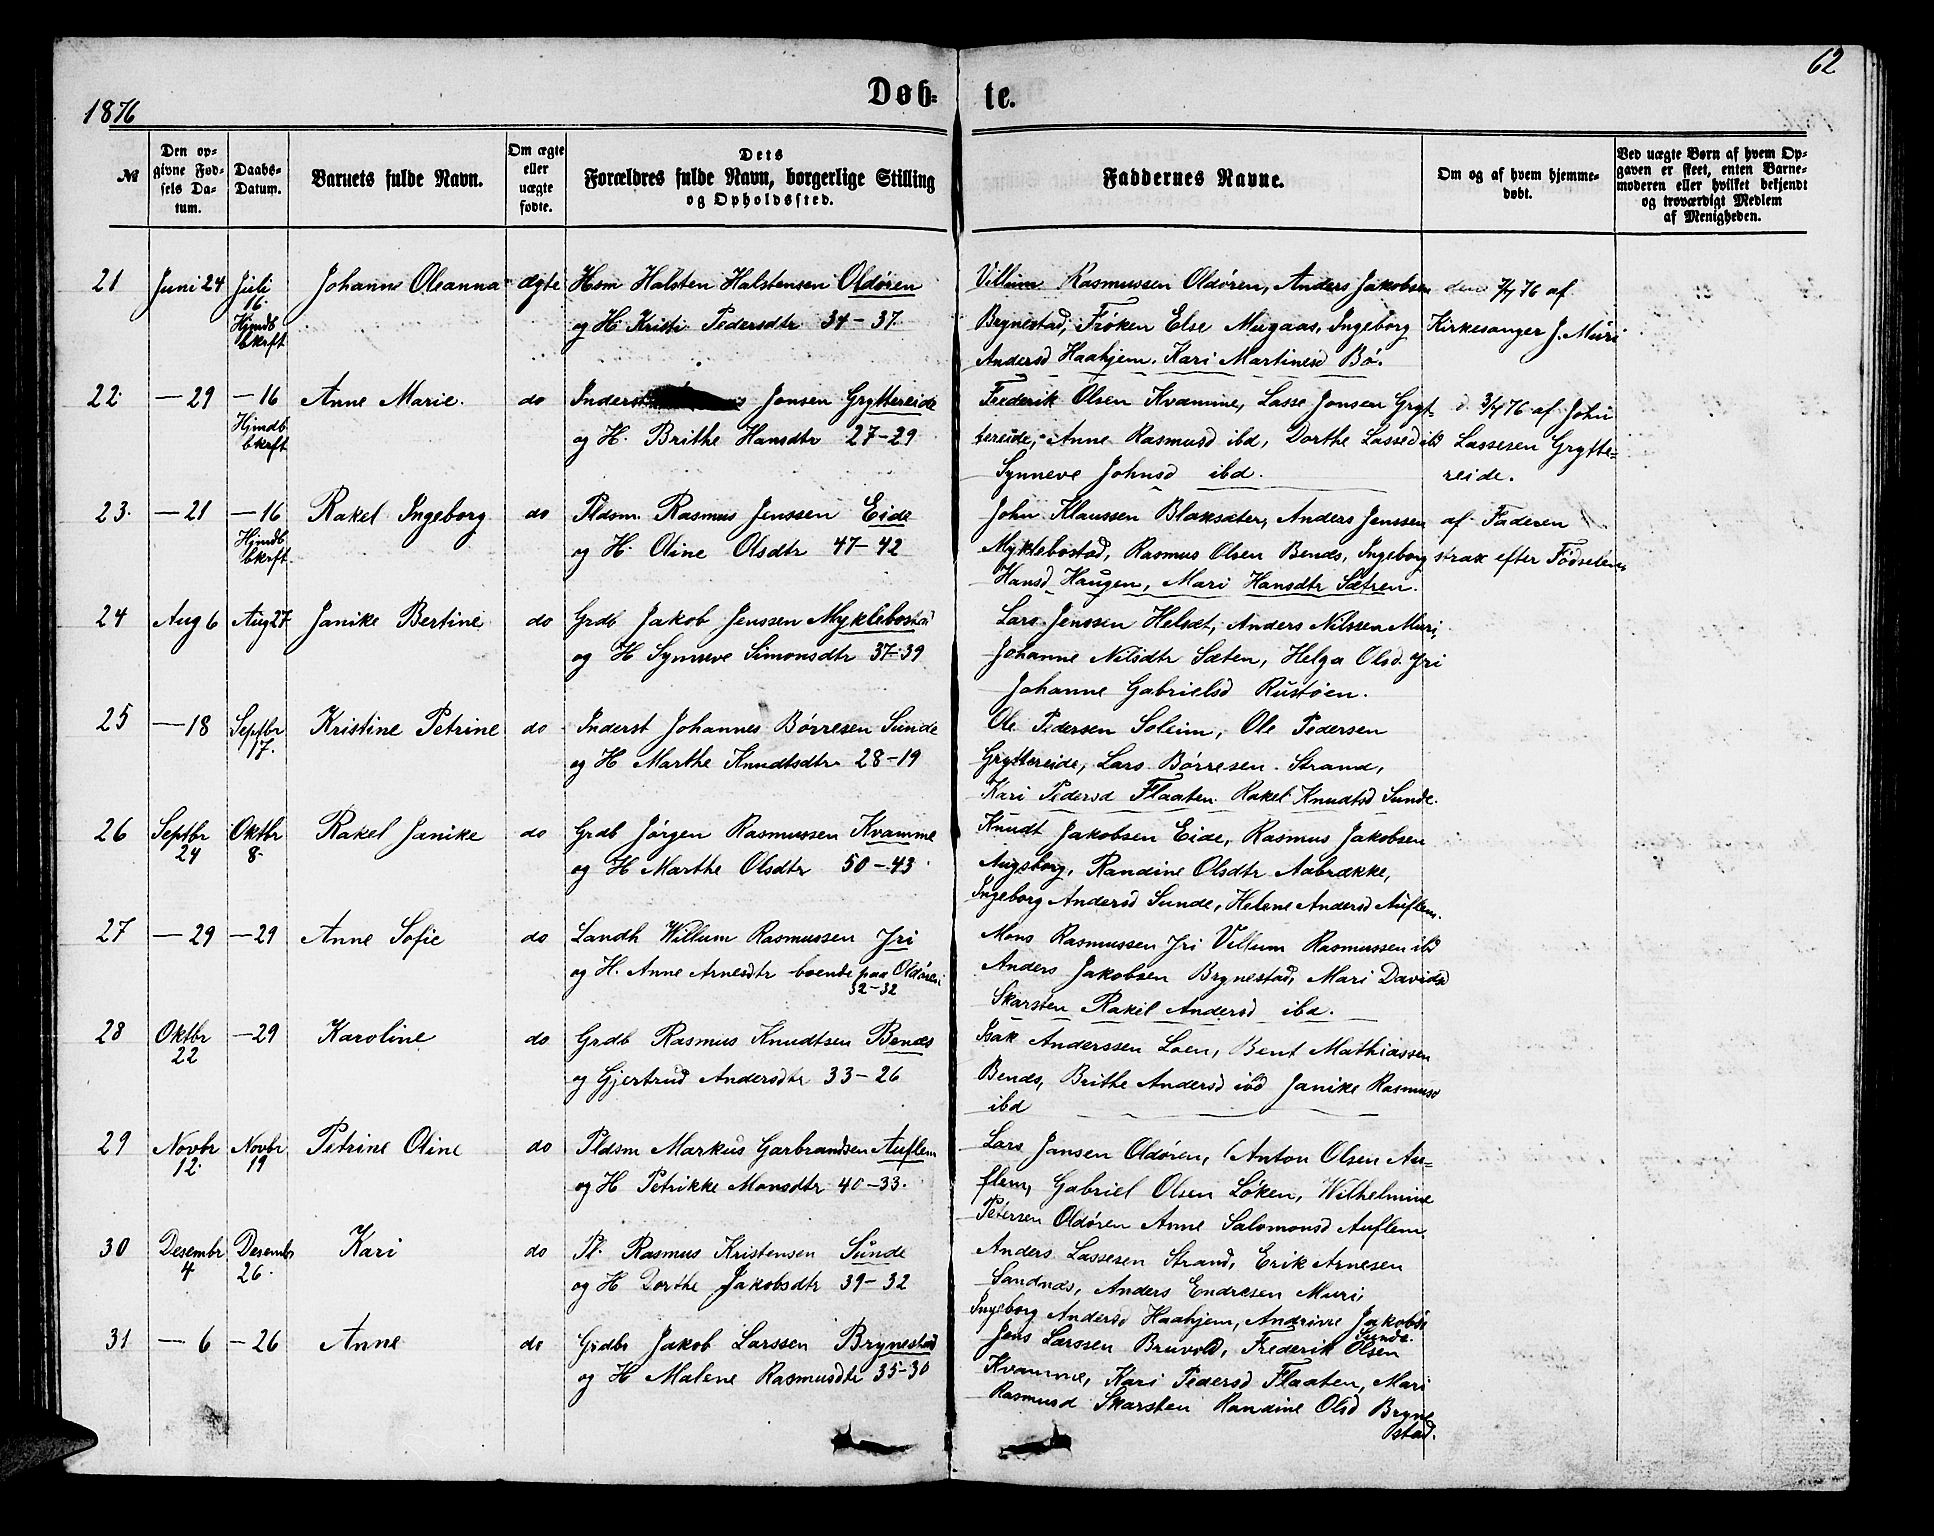 62
1876
Døb-
te.
№
Den op-
givne Fød-
sels Da-
tum.
Daabs-
Datum.
Barnets fulde Navn.
Om ægte
eller
uægte
fødte.
Dets
Forældres fulde Navn, borgerlige Stilling
og Opholdssted.
Faddernes Navne.
Om og af hvem hjemme-
døbt.
Ved uægte Børn af hvem Op-
gaven er skeet, enten Barne-
moderen eller hvilket bekjendt
og troværdigt Medlem
af Menigheden.
21 Juni 24 Juli Johanne Oleanna ægte Hsm Halsten Halstensen Oldøren Villum Rasmussen Oldøren, Anders Jakobsen den 7/7 76 af
16. Hjmdb bkrft og H. Kristi Pedersdtr 34-37 Brynestad, Frøken Else Mugaas, Ingeborg Kirkesanger J. Muri
Andersd Haahjem. Kari Martinesd Bø.
22. — 29 — 16 Anne Marie. do Inderst Jonsen Gryttereide Frederik Olsen Kvamme, Lasse Jonsen Gryt- d. 3/7 76 af John
Hjmdb bkrft og H. Brithe Hansdtr 27-29 tereide, Anne Rasmusd ibd, Dorthe Lassed ibd Lassesen Grytte-
Synneve Johnsd ibd. reide.
23. — 21 — 16 Rakel Ingeborg do Pldsm. Rasmus Jenssen Eide John Klaussen Blaksæter, Anders Jenssen af Faderen
Hjmdb bkrft. og H. Oline Olsdtr 47-42 Myklebostad, Rasmus Olsen Bends, Ingeborg strax efter Fødselen,
Hansd Haugen, Mari Hansdtr Sætren.
24 Aug 6 Aug 27 Janike Bertine do Grdb Jakob Jenssen Myklebostad Lars Jenssen Helset, Anders Nilssen Muri,
og H Synneve Simonsdtr 37-39 Johanne Nilsdtr Sæten, Helga Olsd. Jri
Johanne Gabrielsd Rustøen.
25 — 18 Septbr Kristine Petrine do Inderst Johannes Børresen Sunde Ole Pedersen Soleim, Ole Pedersen
17. og H Marthe Knudtsdtr 28-19 Gryttereide, Lars Børresen Strand,
Kari Pedersd Flaaten Rakel Knudtsd Sunde.
26 Septbr Oktbr Rakel Janike do Grdb Jørgen Rasmussen Kvamme Knudt Jakobsen Eide, Rasmus Jakobsen
24 8. og H Marthe Olsdtr 50-43 Augsborg, Randine Olsdtr Aabrække,
Ingeborg Andersd Sunde, Helene Andersd Auflem.
27 — 29 — 29 Anne Sofie do Landh Willum Rasmussen Jri Mons Rasmussen Jri Villum Rasmussen ibd
og H. Anne Arnesdtr boende paa Oldøren Anders Jakobsen Brynestad, Mari Davidsd
32-32 Skarsten Rakel Andersd ibd.
28 Oktbr — 29 Karoline do Grdb Rasmus Knudtsen Bends Isak Anderssen Loen, Bent Mathiassen
22 og Gjertrud Andersdtr 33-26 Bends, Brithe Andersd ibd Janike Rasmusd
ibd
29 Novbr Novbr Petrine Oline do Pldsm Markus Garbrandsen Auflem Lars Jansen Oldøren, Anton Olsen Au-
12. 19 og H Petrikke Monsdtr 40-33. flem, Gabriel Olsen Løken, Wilhelmine
Petersen Oldøren Anne Salomonsd Auflem
30 Desembr Desembr Kari do Pl. Rasmus Kristensen Sunde Anders Lassesen Strand, Erik Arnesen
4 26. og H Dorthe Jakobsdtr 39-32 Sandnes, Anders Endresen Muri,
Ingeborg Andersd Haahjem, Andrine Jakobsd
Sunde.
31 — 6 — 26 Anne do Grdbr Jakob Larssen Brynestad Jens Larssen Bruvold, Frederik Olsen
og H Malene Rasmusdtr 35-30 Kvamme, Kari Pedersd Flaaten, Mari
Rasmusd Skarsten Randine Olsd Bryne
stad.